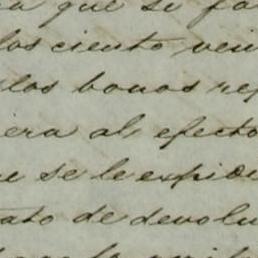 a que se fa
los ciento vein
los bonos rep
iera al efecto
e se le expide
tato de devolu